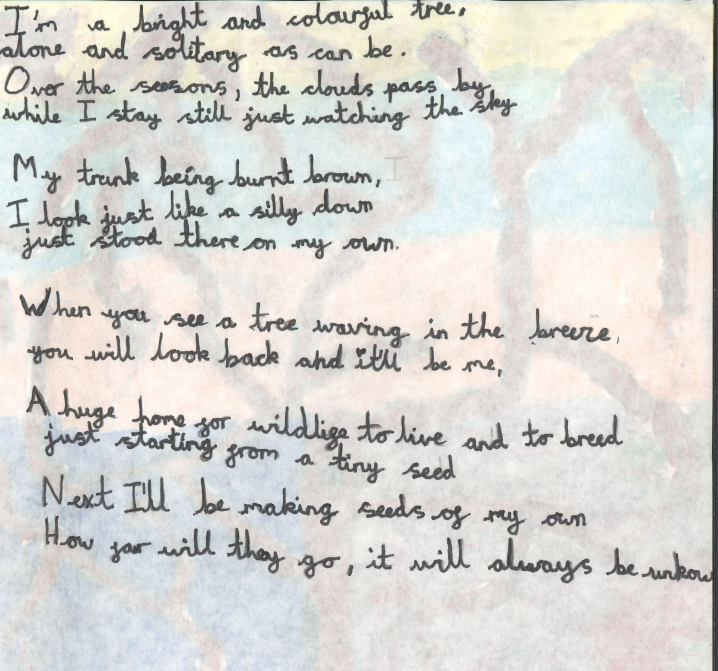 I'm a bright and colourful tree,
alone and solitary as can be.
Over the seasons, the clouds pass by
while I stay still just watching the sky
My trunk being burnt brown, I
I look just like a silly clown
just stood there on my own.
When you see a tree waving in the breeze,
you will look back and it'll be me,
A huge home for wildlife to live and to breed
just starting from a tiny seed
Next I'll be making seeds of my own
How far will they go, it will always be unkow